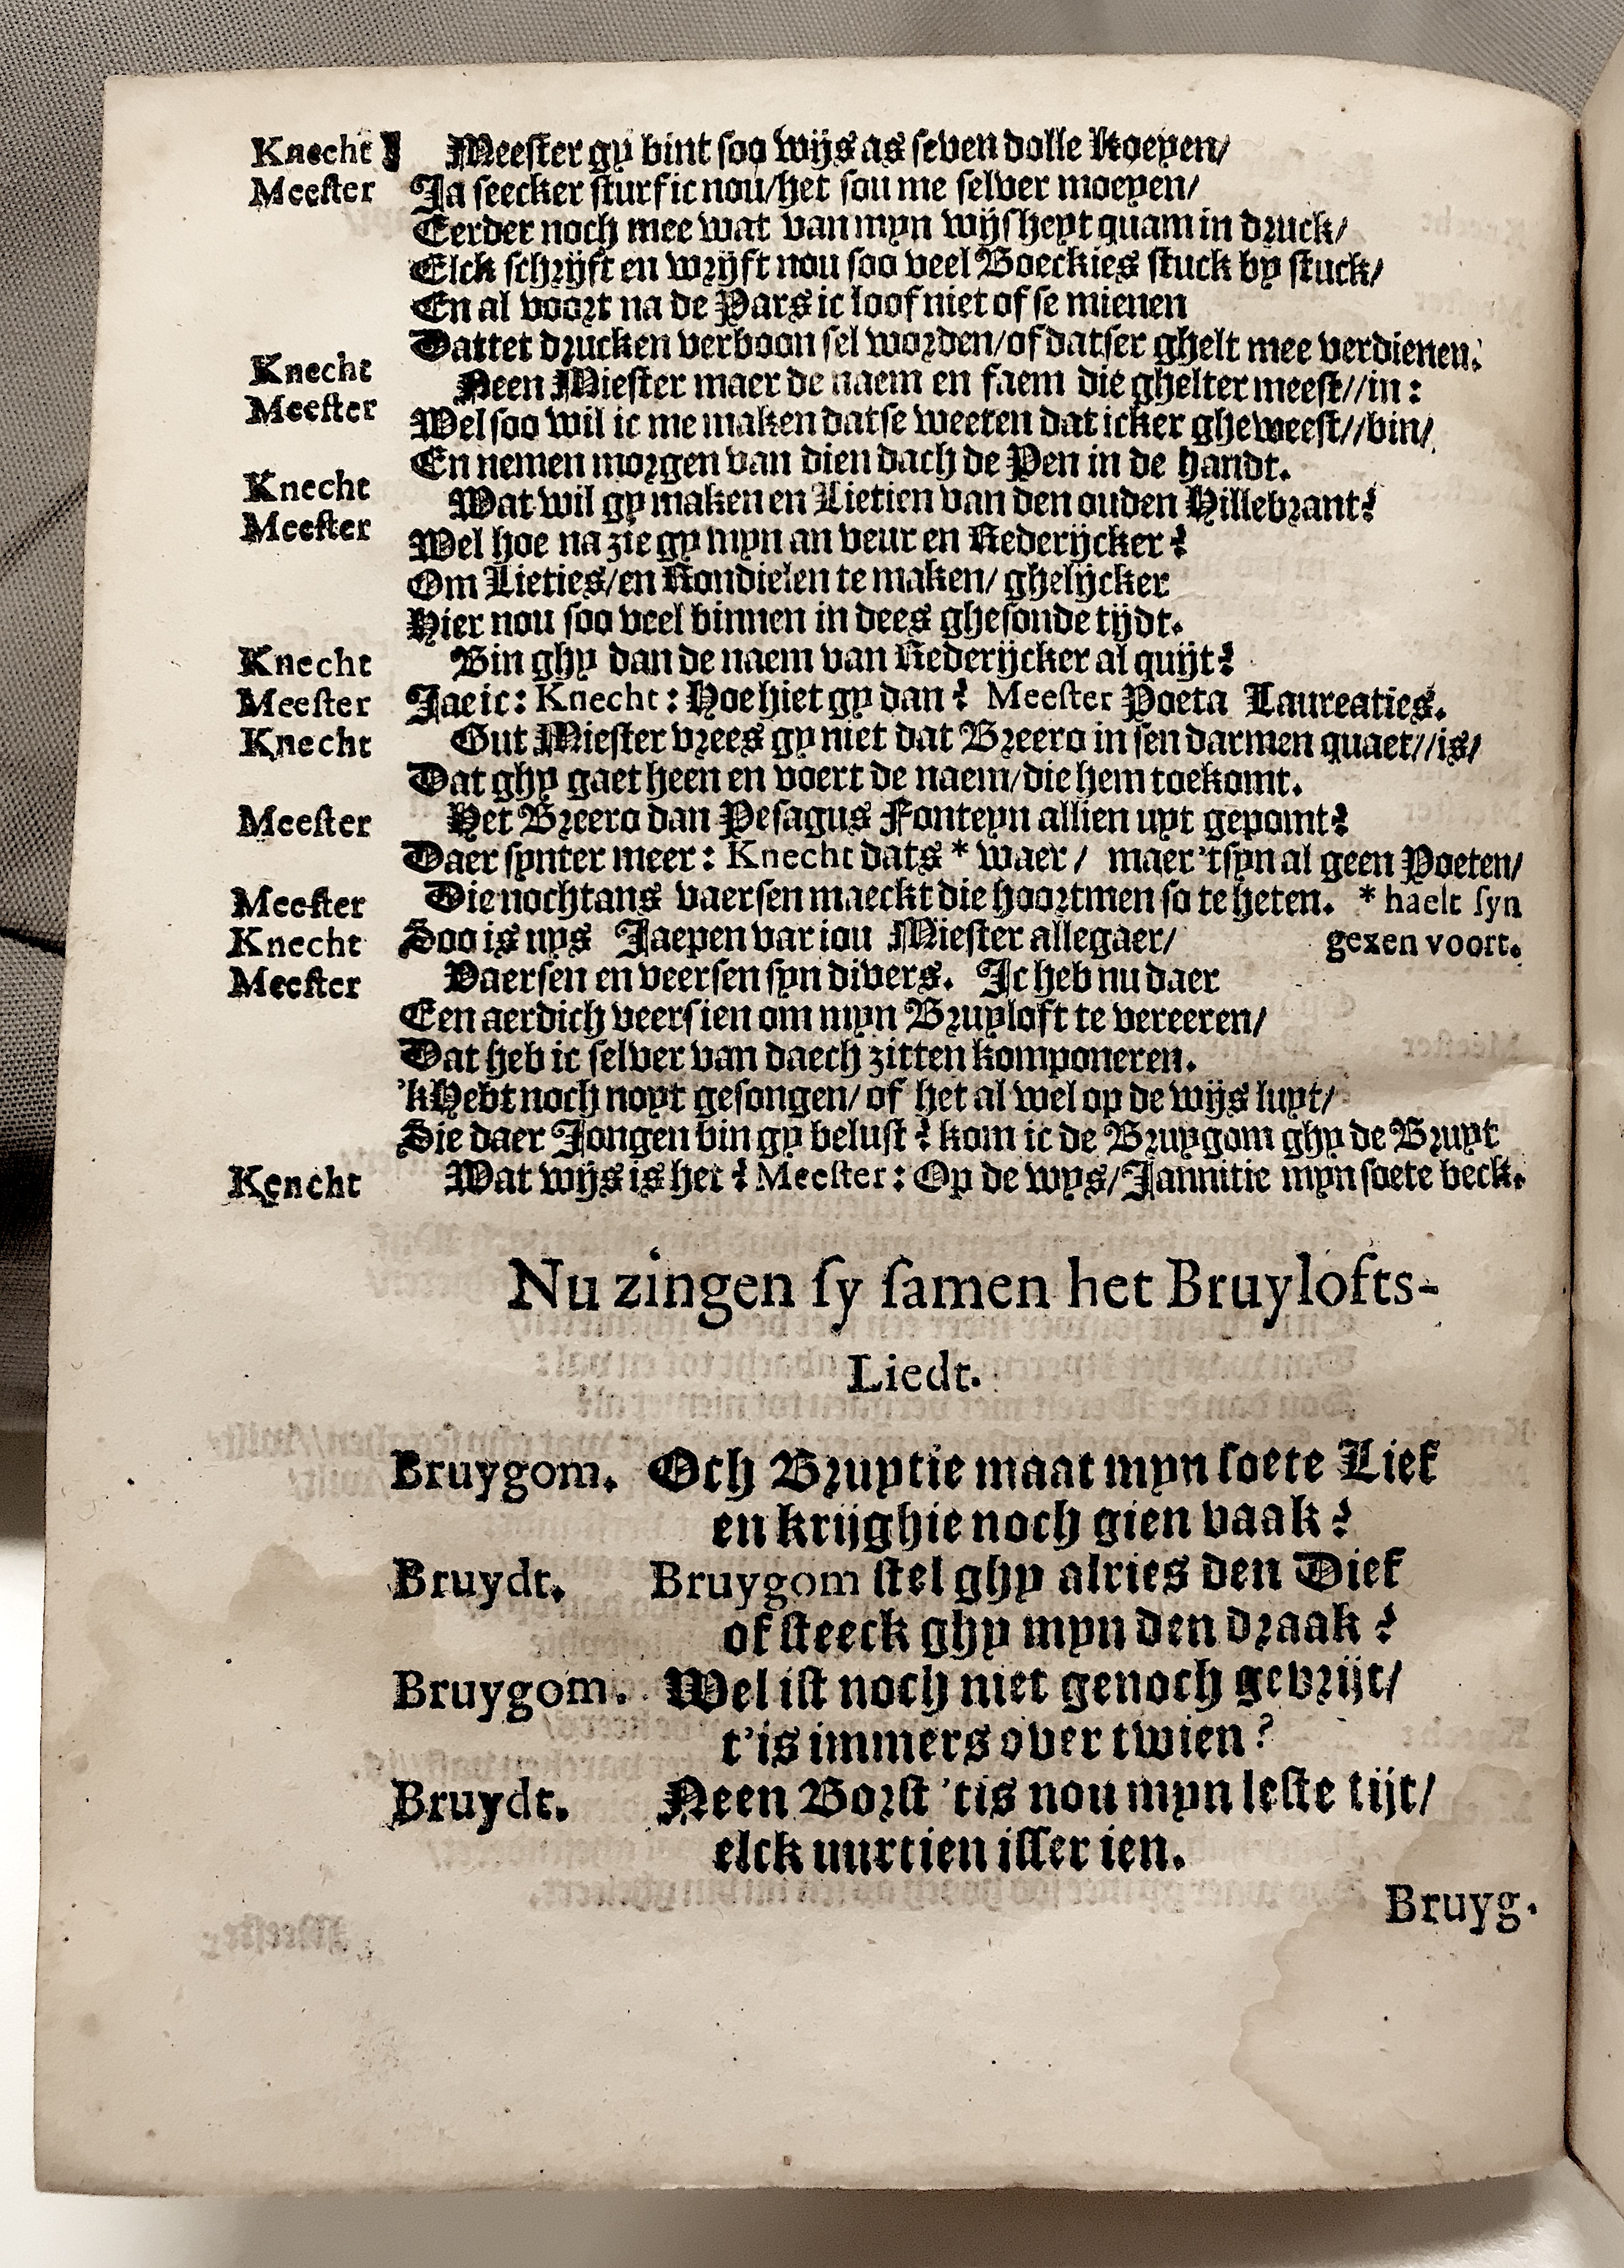 Knecht Meester gy bint soo wijs as seven dolle Koeyen/
Meester Ja seecker sturf ic nou/het sou me selver moeyen/
Eerder noch mee wat van myn wijsheyt quam in druck/
Elck schrijft en wrijft nou soo veel Boeckies stuck by stuck/
En al voort na de Pars ic loof niet of se mienen
Dattet drucken verboon sel worden/of datser ghelt mee verdienen.
Knecht Neen Miester maer de naem en faem die ghelter meest//in:
Meester Wel soo wil ic me maken datse weeten dat icker gheweest//bin/
En nemen morgen van dien dach de Pen in de handt.
Knecht Wat wil gy maken en Lietien van den ouden Hillebrant?
Meester Wel hoe na zie gy myn an veur en Rederijcker?
Om Lieties/en Rondielen te maken/ ghelijcker
Hier nou soo veel binnen in dees ghesonde tijdt.
Knecht Bin ghy dan de naem van Rederijcker al quijt?
Meester Jae ic: Knecht: Hoe hiet gy dan? Meester Poeta Laureaties.
Knecht Gut Miester vrees gy niet dat Breero in sen darmen quaet//is/
Dat ghy gaet heen en voert de naem/die hem toekomt.
Meester Het Breero dan Pesagus Fonteyn allien uyt gepomt?
Daer synter meer: Knecht dats * waer / maer 'tsyn al geen Poeten/
Meester Die nochtans vaersen maeckt die hoortmen so te heten. * haelt syn
Knecht Soo is uys Jaepen var iou Miester allegaer/ gexen voort.
Meester Vaersen en veersen syn divers. Ic heb nu daer
Een aerdich veersien om myn Bruyloft te vereeren/
Dat heb ic selver van daech zitten komponeren.
'kHebt noch noyt gesongen/ of het al wel op de wijs luyt/
Sie daer Jongen bin gy belust? kom ic de Bruygom ghy de Bruyt
Kencht Wat wijs is het? Meester: Op de wys/Jannitie myn soete beck.
Nu zingen sy samen het Bruylofts-
Liedt.
Bruygom. Och Bruytie maat myn soete Lief
en krijghie noch gien vaak?
Bruydt. Bruygom stel ghy alries den Dief
of steeck ghy myn den draak?
Bruygom. Wel ist noch niet genoch gevrijt/
t'is immers over twien?
Bruydt. Neen Borst 'tis nou myn leste tijt/
elck uurtien isser ien.
Bruyg.